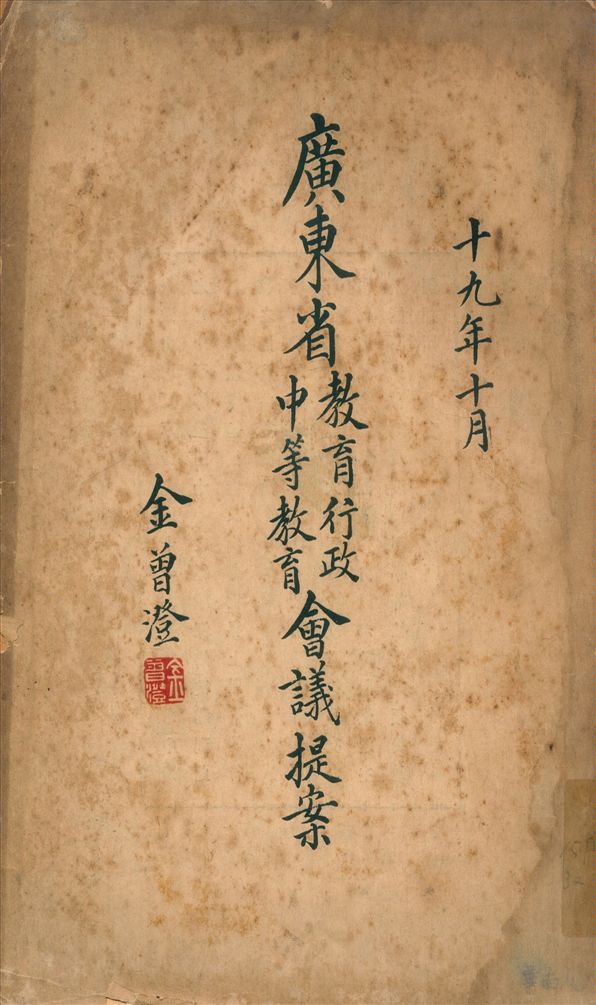 十九年十月
廣東省教育行政中等教育會議提案
金曾澄
金曾澄